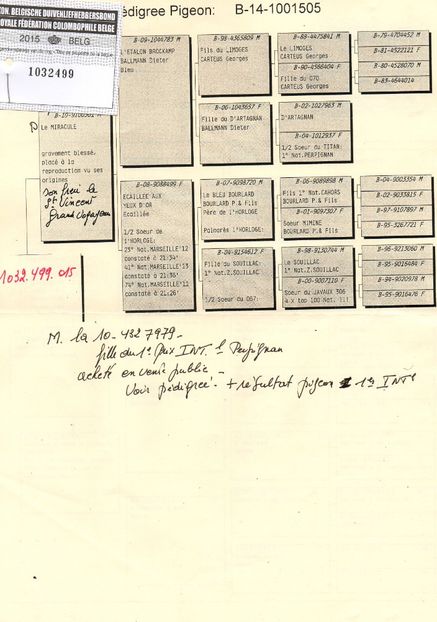 ON. BELGISCHE DUIVENLIEFHEBBERSBOND
OYALE FÉDÉRATION COLOMBOPHILE BELGE
2015 BELG
1032499
édigree Pigeon: B-14-1001505
Le MIRACULE
gravement blessé,
placé à la
reproduction vu ses
origines
son frère le
St Vincent
1032.499.015
B-09-1044783 M
L'ETALON BROCKAMP
BALLMANN Dieter
Bleu
B-08-9088499 F
ECAILLEE AUX
YEUX D'OR
Ecaillée
1/2 Soeur de
L'HORLOGE:
23° Nat.MARSEILLE'12
constaté à 21:34'
41° Nat.MARSEILLE'13
constaté à 21:35'
74° Nat.MARSEILLE'11
constaté à 21:26'
B-98-4365809 M
Fils du LIMOGES
CARTEUS Georges
B-04-1043657 F
Fille du D'ARTAGNAN
BALLMANN Dieter
B-07-9098720 M
Le BLEU BOURLARD
BOURLARD P.& Fils
Père de l'HORLOGE
Palmarès L'HORLOGE:
B-04-9154612 F
Fille du SOUILLAC:
1° Nat.Z.SOUILLAC
1/2 Soeur du 067:
B-88-4475841 M
Le LIMOGES
CARTEUS Georges
B-90-4566404 F
Fille du 070
CARTEUS Georges
B-02-1027963 M
D'ARTAGNAN
B-04-1012937 F
1/2 Soeur du TITAN:
1° Nat.PERPIGNAN
B-06-9089898 M
Fils 1° Nat.CAHORS
BOURLARD P.& Fils
B-01-9097307 F
Soeur MIMINE
BOURLARD P.& Fils
B-98-9130744 M
Le SOUILLAC
1° Nat.Z.SOUILLAC
B-00-9007110 F
Soeur du JAVAUX 306
4 x top 100 Nat. !!!
B-79-4704452 M
B-81-4522121 F
B-80-4528070 M
B-83-4644014
B-04-9003354 M
B-02-9033815 F
B-97-9107897 M
B-95-3267721 F
B-96-9213060 M
B-95-9015484 F
B-94-9020978 M
B-95-9016476 F
M. la 10-4327979-
fille du 1° Prix INT. Perpignan
acheté en vente public -
Voir pédigrée. + résultat pigeon 1° INT